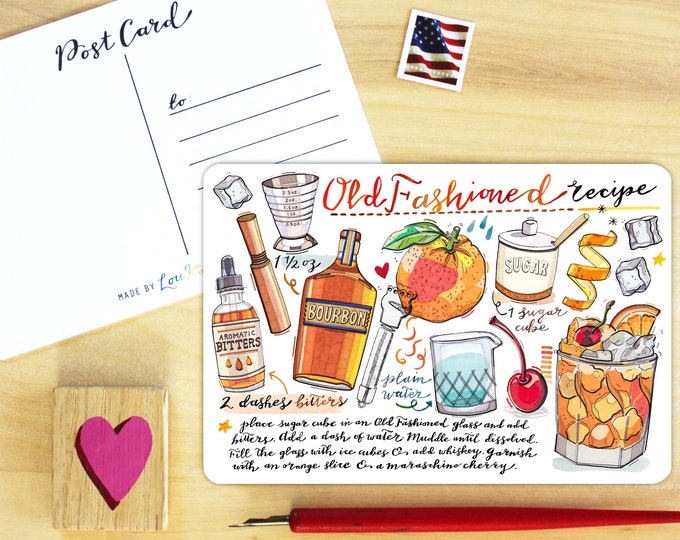 Post Card
to:
MADE BY
Old Fashioned recipe
2.5oz
2oz
1.5oz
1oz
0.5oz
1 1/2 oz
SUGAR
BOURBON
1 sugar
cube
AROMATIC
BITTERS
plain
water
2 dashes bitters
place sugar cube in an Old Fashioned glass and add
bitters. Add a dash of water Muddle until dissolved.
Fill the glass with ice cubes & add whiskey. Garnish
with an orange slice & a maraschino cherry.